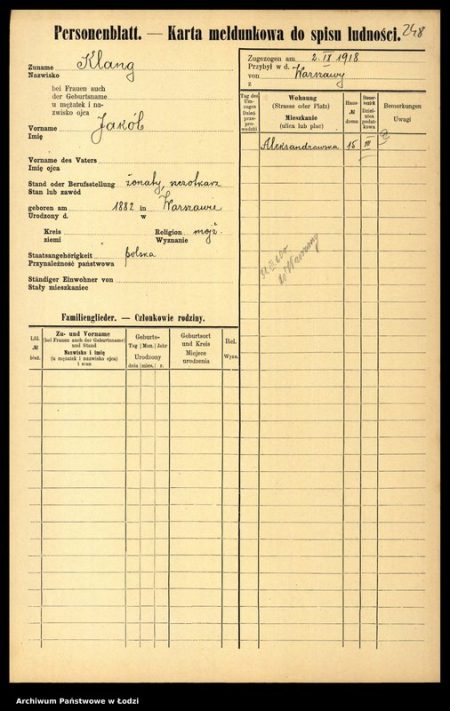 Personenblatt. — Karta meldunkowa do spisu ludności. 248
Zuname
Nazwisko
Klang
bei Frauen auch
der Geburtsname
u mężatek i na-
zwisko ojca
Vorname
Imię
Jakób
Vorname des Vaters
Imię ojca
Stand oder Berufsstellung
Stan lub zawód
żonaty,
geboren am 1882 in Warszawie
Urodzony d. w
Kreis Religion mojż.
ziemi Wyznanie
Staatsangehörigkeit polska
Przynależność państwowa
Ständiger Einwohner von
Stały mieszkaniec
Familienglieder. — Członkowie rodziny.
Lfd.
№
bież.
Zu- und Vorname
(bei Frauen auch der Geburtsname)
und Stand
Nazwisko i imię
(u mężatek i nazwisko ojca)
i stan
Geburts-
Tag Mon. Jahr
Urodzony
dnia mies. r.
Geburtsort
und Kreis
Miejsce
urodzenia
Rel.
Wyzn.
Zugezogen am 2. IX 1918
Przybył w d.
von Warszawy
z
Tag des
Um-
zuges
Dzień
prze-
prowadzki
Wohnung
(Strasse oder Platz)
Mieszkanie
(ulica lub plac)
Haus-
№
domu
Bemerkungen
Uwagi
Aleksandrowska 15 III
do Warszawy
Archiwum Państwowe w Łodzi